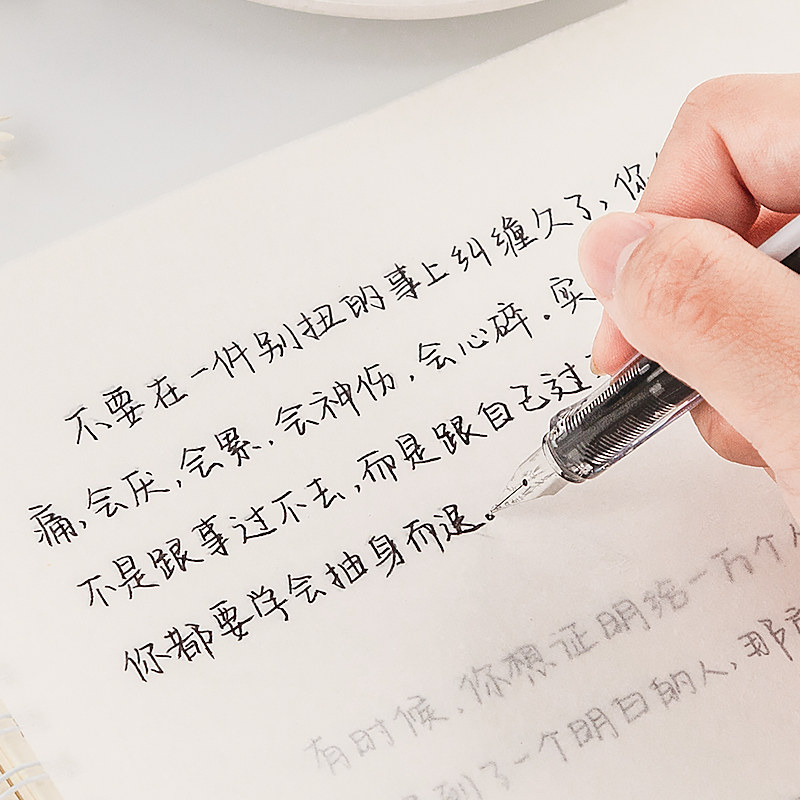 不要在一件别扭的事上纠缠久了,你
痛,会厌,会累,会神伤,会心碎。实
不是跟事过不去,而是跟自己过
你都要学会抽身而退。
有时候,你想证明给一万个人
到了一个明白的人,那